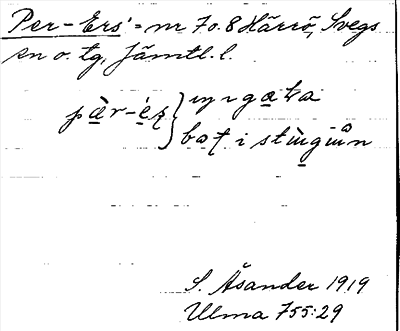 Per-Ers' = nr 7 o. 8 Härrö, Svegs
sn o. tg, Jämtl. l.
pä̀r-éʂ } nyrgaka
bat i stùgun
S. Åsander 1919
Ulma 755:29